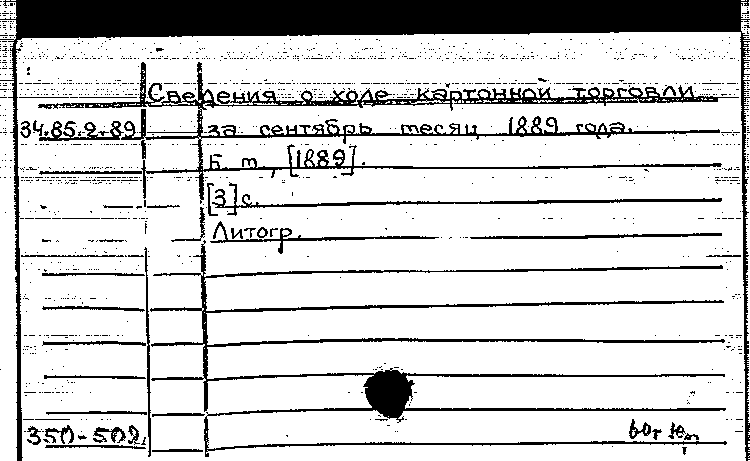 Сведения о ходе картонной торговли
34.85.2.89 за сентябрь месяц 1889 года.
Б. м., [1889].
[3]с.
Литогр.
350-509